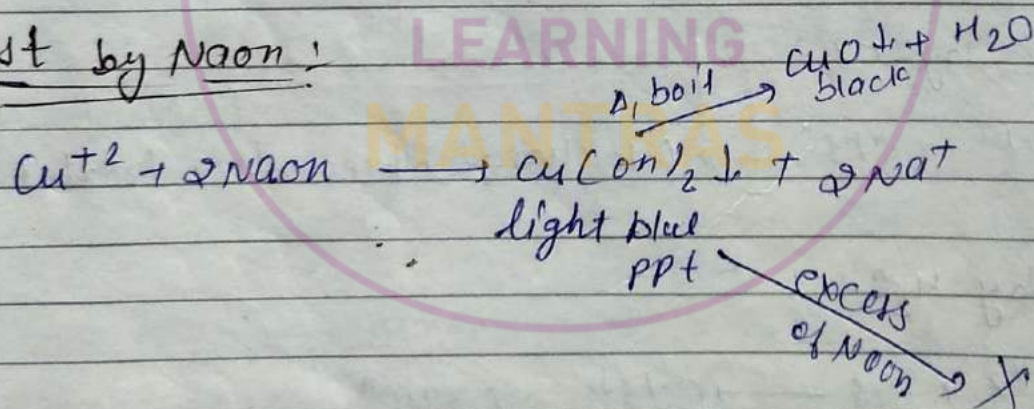 st by NaOH :
LEARNING
MANTRAS
Δ, boil → CuO↓ + H2O
black
Cu+2 + 2NaOH → Cu(OH)2↓ + 2Na+
light blue
ppt
excess
of NaOH → X